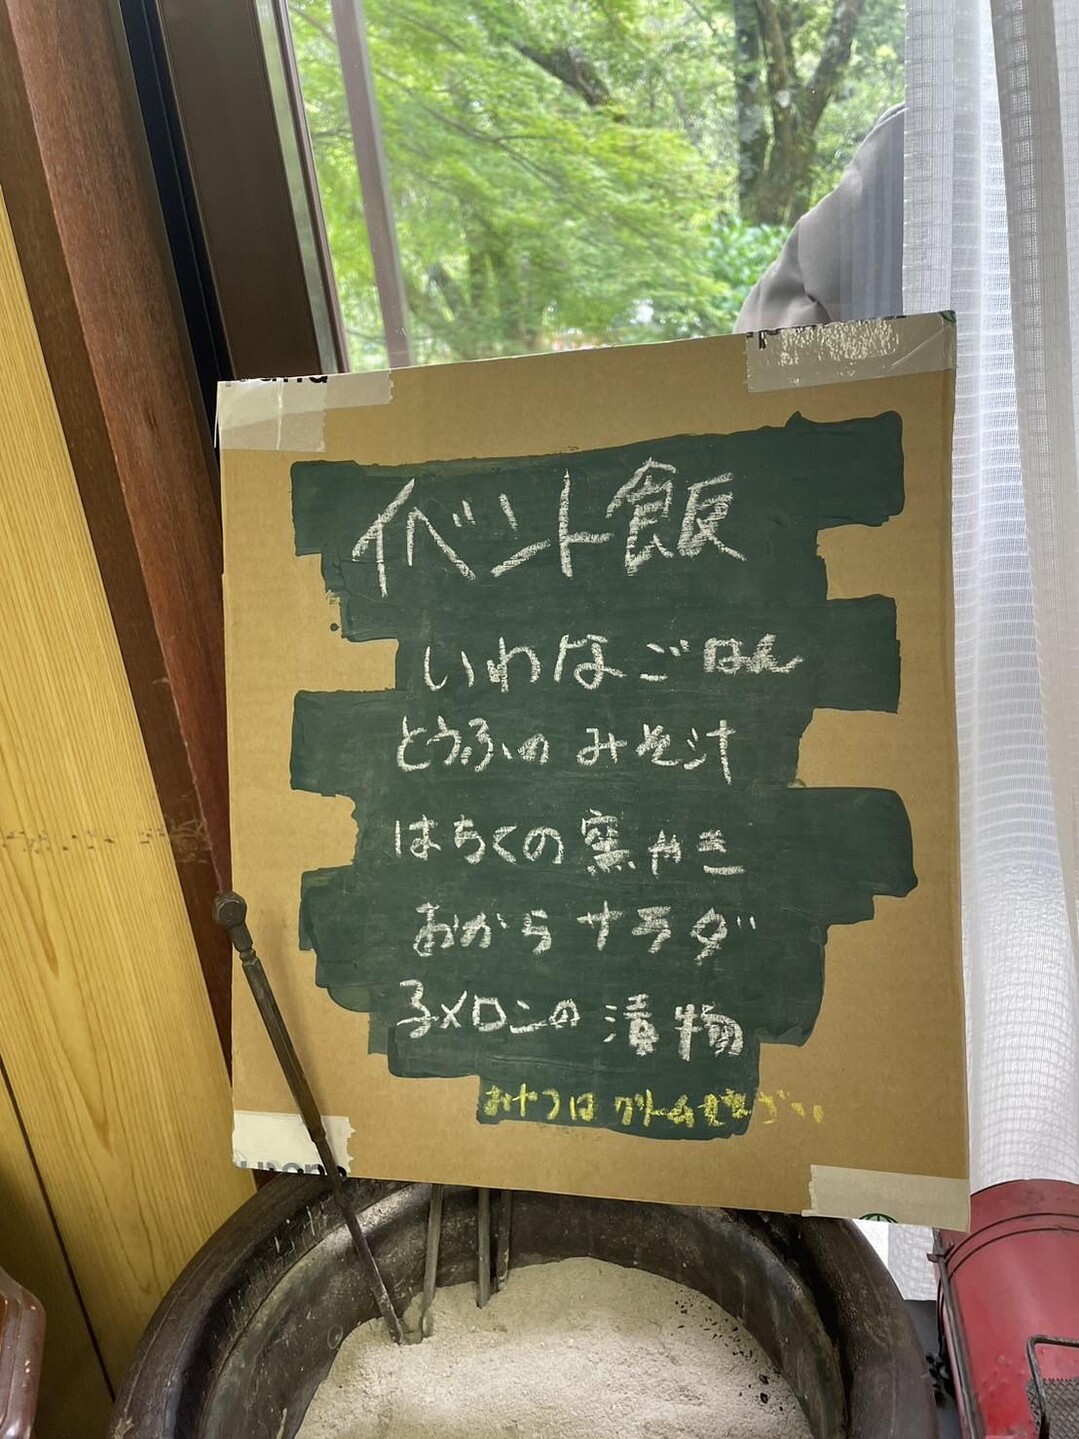 イベント飯
いわなごはん
とうふの みそ汁
はちくの窯やき
おからサラダ
子メロンの漬物
おやつは クリームぜんざい